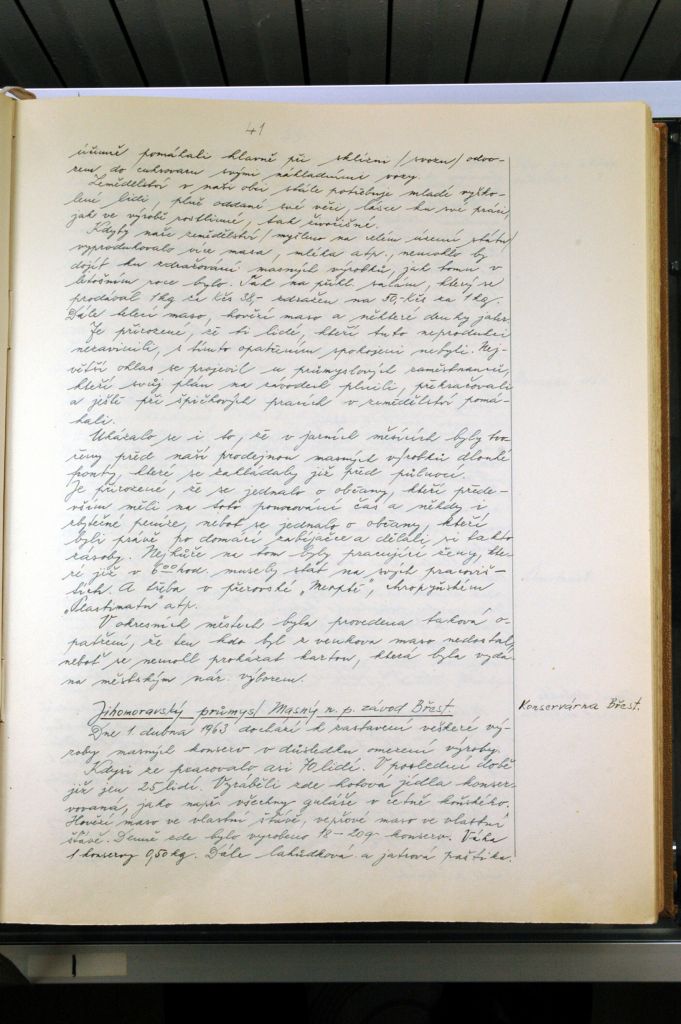 41
účinně pomáhali hlavně při sklizni /svozu/ odvo-
zem do cukrovaru svými nákladními vozy.
Zemědělství v naší obci stále potřebuje mladé vyško-
lené lidi, plně oddané své věci, lásce ku své práci,
jak ve výrobě rostlinné, tak živočišné.
Kdyby naše zemědělství /myšleno na celém území státu/
vyprodukovalo více masa, mléka atp., nemohlo by
dojít ku zdražování masných výrobků, jak tomu v
letošním roce bylo. Tak na příkl. salám, který se
prodával 1 kg za Kčs 38,- zdražen na 50,- Kčs za 1 kg.
Dále telecí maso, hovězí maso a některé druhy jater.
Je přirozené, že ti lidé, kteří tuto neprodukci
nezavinili, s tímto opatřením spokojeni nebyli. Nej-
větší ohlas se projevil u průmyslových zaměstnanců,
kteří svůj plán na závodech plnili, překračovali
a ještě při špičkových pracích v zemědělství pomá-
hali.
Ukázalo se i to, že v jarních měsících byly tvo-
řeny před naší prodejnou masných výrobků dlouhé
fronty, které se zakládaly již před půlnocí.
Je přirozené, že se jednalo o občany, kteří přede-
vším měli na toto ponocování čas a někdy i
zbytečné peníze, neboť se jednalo o občany, kteří
byli právě po domácí zabíjačce a dělali si takto
zásoby. Nejhůře na tom byly pracující ženy, kte-
ré již v 6°° hod. musely stát na svých pracoviš-
tích. A třeba v přerovské „Meoptě", chropyňském
„Plastimatu" atp.
V okresních městech byla provedena taková o-
patření, že ten kdo byl z venkova maso nedostal,
neboť se nemohl prokázat kartou, která byla vydá-
na městským nár. výborem.
Jihomoravský průmysl Masný n. p. závod Břest.
Konservárna Břest.
Dne 1. dubna 1963 dochází k zastavení veškeré vý-
roby masných konserv v důsledku omezení výroby.
Kdysi ze pracovalo asi 70 lidí. V poslední době
již jen 25 lidí. Vyráběli zde hotová jídla konser-
vovaná, jako např. všechny guláše v četně koňského.
Hovězí maso ve vlastní šťávě, vepřové maso ve vlastní
šťávě. Denně zde bylo vyrobeno 18-20 q. konserv. Váha
1 konservy 0,50 kg. Dále lahůdková a játrová paštika.